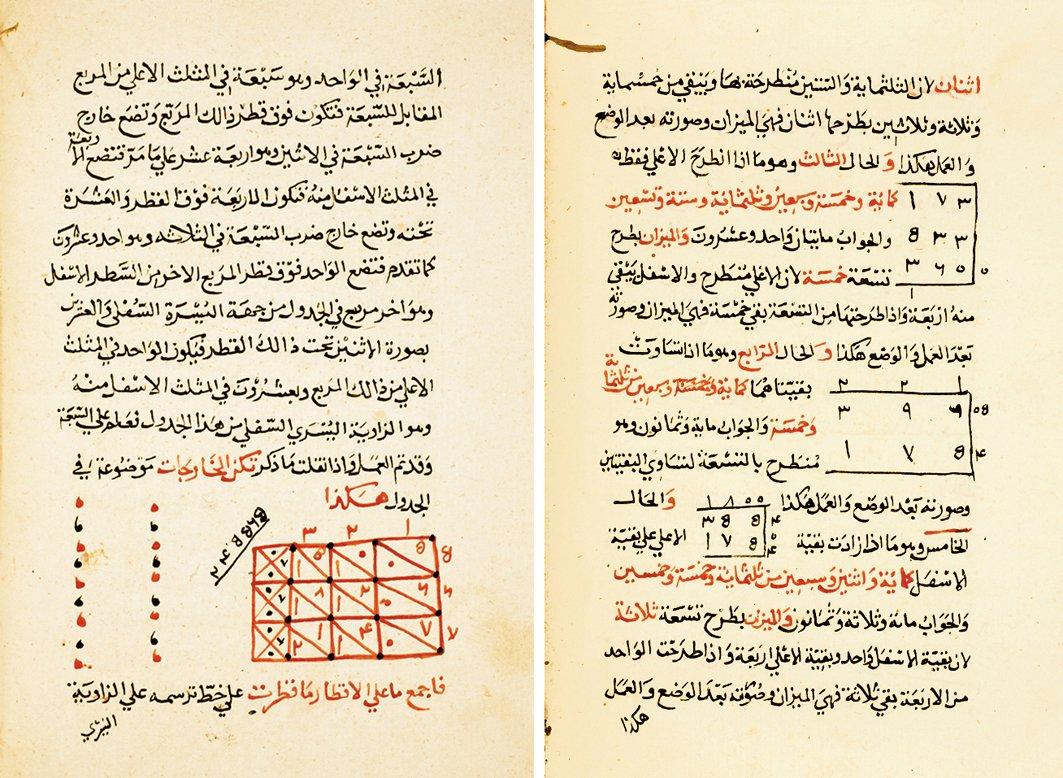 اثنان لان الثلثماية والستين منطرحة بها ويبقي من خمسماية
وثلاثة وثلاثين بطرحها اثنان فهي الميزان وصورته بعد الوضع
والعمل هكذا والحال الثالث وهو ما اذا انطرح الاعلي فقط
كماية وخمسة وسبعين وثلثماية وستة وتسعين
والجواب مايتان واحد وعشرون والميزان بطرح
تسعة خمسة لان الاعلي منطرح والاسفل يبقي
منه اربعة واذا طرحتها من التسعة بقي خمسة فهي الميزان وصورته
بعد العمل والوضع هكذا والحال الرابع وهو ما اذا تساوت
بقيتاهما كماية وخمسة وسبعين من ثلثماية
وخمسة والجواب ماية وثمانون وهو
منطرح بالتسعة لتساوي البقيتين
وصورته بعد الوضع والعمل هكذا والحال
الخامس وهو ما اذا زادت بقية الاعلي علي بقية
الاسفل كماية واثنين وسبعين من ثلثماية وخمسة وخمسين
والجواب مائة وثلاثة وثمانون والميزان بطرح تسعة ثلاثة
لان بقية الاسفل واحد وبقية الاعلي اربعة واذا طرحت الواحد
من الاربعة بقي ثلاثة فهي الميزان وصورته بعد الوضع والعمل
هكذا
السبعة في الواحد وهو سبعة في المثلث الاعلي من المربع
المقابل للسبعة فتكون فوق قطر ذالك المربع وتضع خارج
ضرب السبعة في الاثنين وهو اربعة عشر علي ما مر فتضع الاربعة
في المثلث الاسفل منه فتكون الاربعة فوق القطر والعشرة
تحته وتضع خارج ضرب السبعة في الثلاثه وهو احد وعشرون
كما تقدم فتضع الواحد فوق قطر المربع الاخر من السطر الاسفل
وهو اخر مربع في الجدول من جهة اليسرة السفلي والعشرين
بصورة الاثنين تحت ذالك القطر فيكون الواحد في المثلث
الاعلي من ذالك المربع والعشرون في المثلث الاسفل منه
وهو الزاوية اليسري السفلي من هذا الجدول فعلم علي السبعة
وقد تم العمل واذا نقلت ما ذكر تكن الخارجات موضوعة في
الجدول هكذا
فاجمع ما علي الاقطار ما قطرت علي خط ترسمه علي الزاوية
اليسري